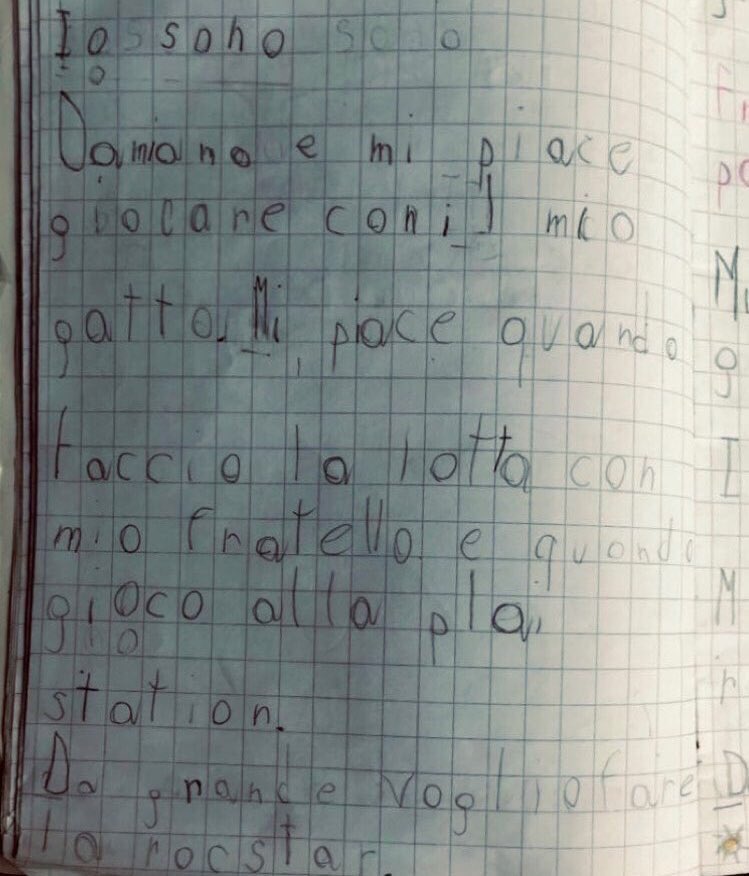 Io sono sono
Damiano e mi piace
giocare con il mio
gatto. Mi piace quando
faccio la lotta con
mio fratello e quando
gioco alla plai
station.
Da grande voglio fare
la rocstar.